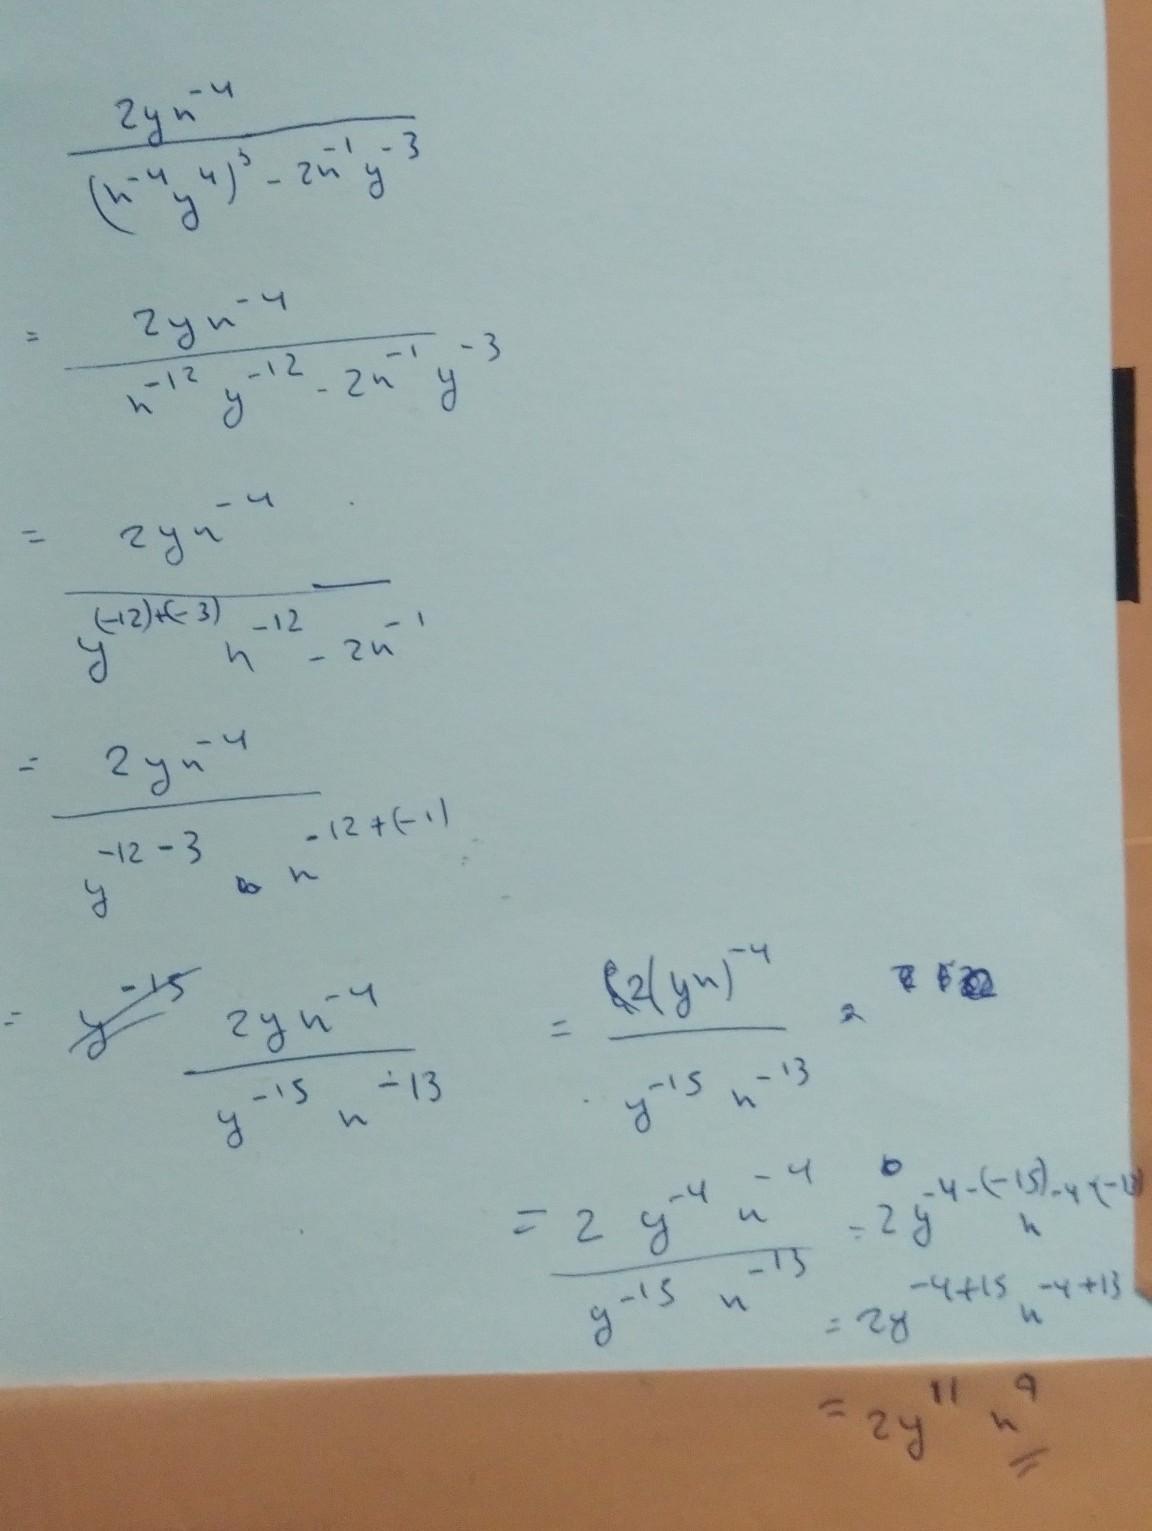 2yn⁻⁴
(n⁻⁴y⁴)³ - 2n⁻¹y⁻³
= 2yn⁻⁴
n⁻¹² y⁻¹² - 2n⁻¹ y⁻³
= 2yn⁻⁴
y⁽⁻¹²⁾⁺⁽⁻³⁾ n⁻¹² - 2n⁻¹
= 2yn⁻⁴
y⁻¹²⁻³ n⁻¹²⁺⁽⁻¹⁾
= y⁻¹⁵ 2yn⁻⁴
y⁻¹⁵ n⁻¹³
= 2(yn)⁻⁴
y⁻¹⁵ n⁻¹³
= 2 y⁻⁴ n⁻⁴
y⁻¹⁵ n⁻¹³
= 2y⁻⁴⁻⁽⁻¹⁵⁾ n
= 2y⁻⁴⁺¹⁵ n⁻⁴⁺¹³
= 2y¹¹ n⁹